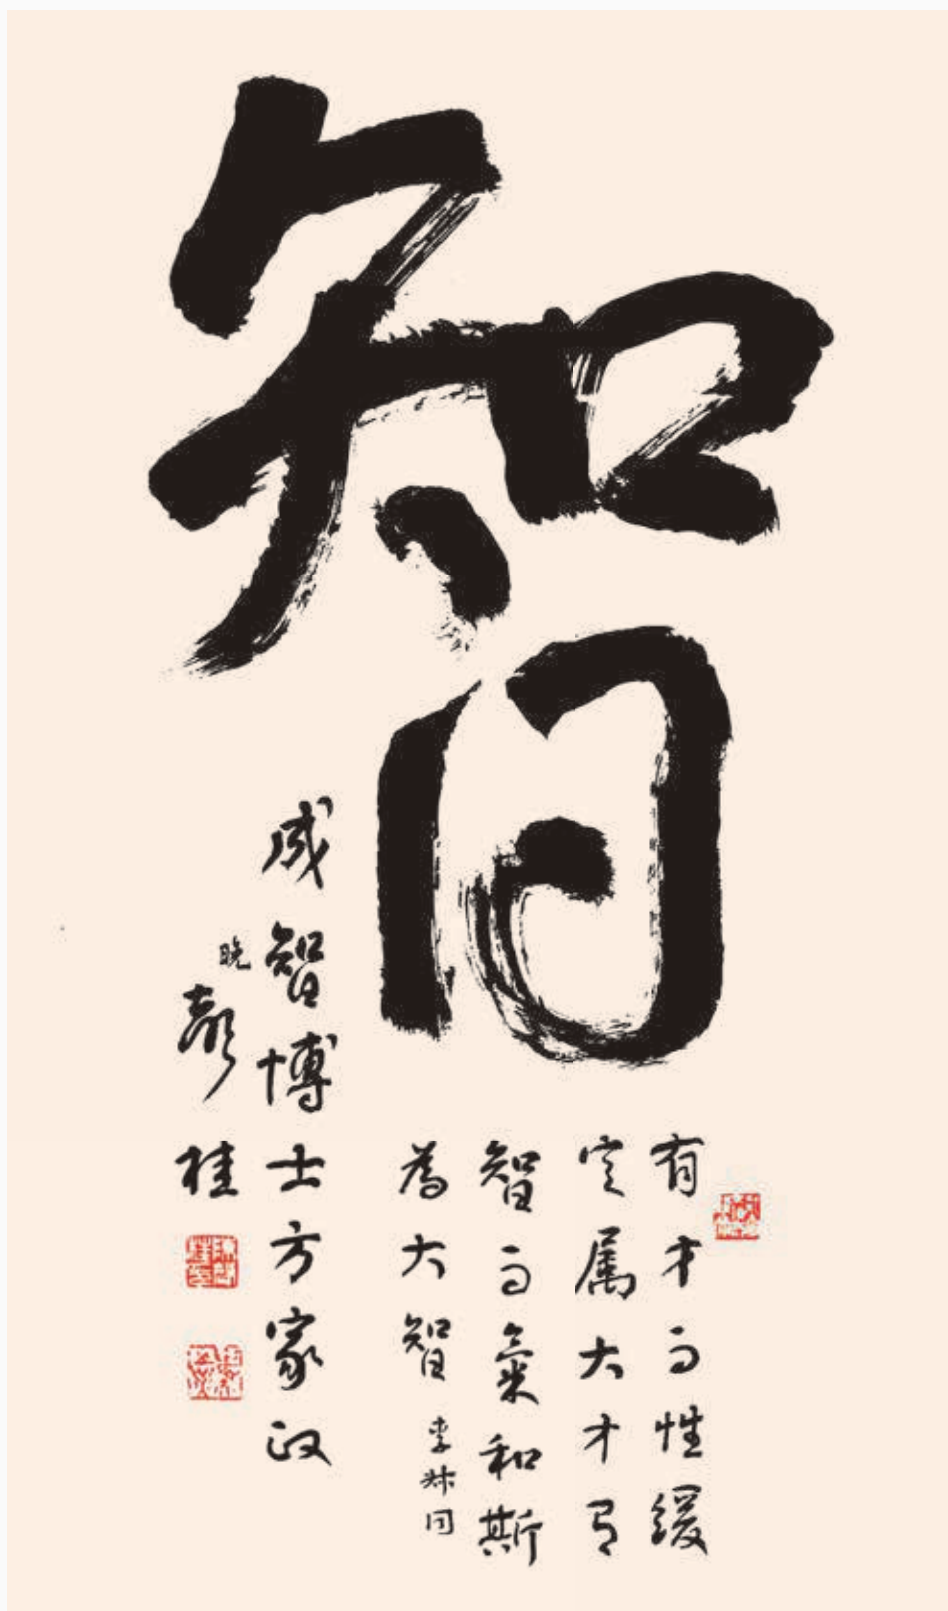 智
有才而性緩
定属大才有
智而氣和斯
為大智 李叔同
成智博士方家政
晚
桂